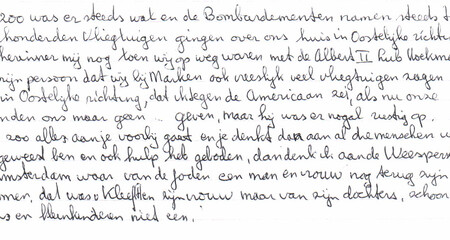 200 was er steeds wat en de Bombardementen namen steeds t
honderden vliegtuigen gingen over ons huis in Oostelijke richtin
herinner mij nog toen wij op weg waren met de Albert II Lub Hoekma
zijn persoon dat wij bij Marken ook vreselijk veel vliegtuigen zagen
in Oostelijke richting, dat ik tegen de Americaan zei, als nu onze
nden ons maar geen .. geven, maar hij was er nogal rustig op.
200 alles aan je voorbij gaat en je denkt dan aan al die mensen w
geweest ben en ook hulp heb geboden, dan denk ik aan de Weespers
msterdam waar van de Joden een man en vrouw nog terug zijn
men, dat was v Kleeff en zijn vrouw maar van zijn dochters, schoon
s en kleinkinderen niet een.